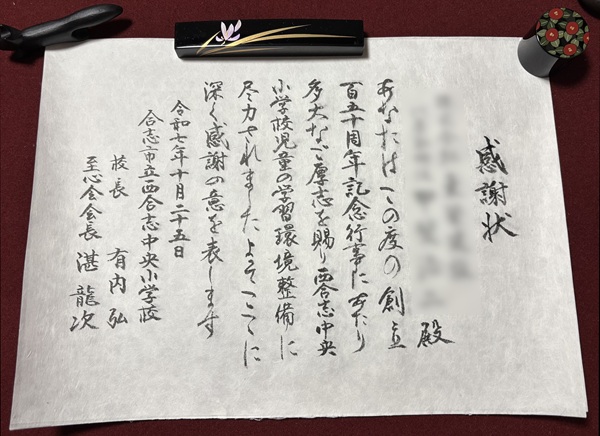 感謝状
殿
あなたはこの度の創立
百五十周年記念行事にあたり
多大なご厚志を賜り西合志中央
小学校児童の学習環境整備に
尽力されましたよってここに
深く感謝の意を表します
令和七年十月二十五日
合志市立西合志中央小学校
校長 有内弘
至心会会長 湛龍次